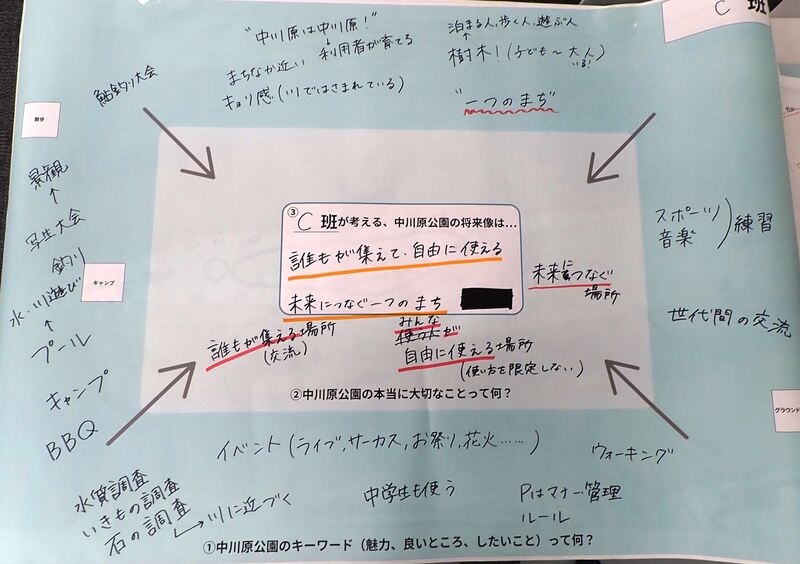 C 班
"中川原は中川原!"
利用者が育てる
まちなか近い
キョリ感(川ではさまれている)
泊まる人,歩く人,遊ぶ人
樹木!(子ども〜大人
いる!
"一つのまち"
鮎釣り大会
散歩
景観
写生大会
釣り
キャンプ
水・川遊び
プール
キャンプ
BBQ
③
C 班が考える、中川原公園の将来像は…
誰もが集えて、自由に使える
未来につなぐ一つのまち
未来につなぐ
場所
誰もが集える場所
(交流)
みんな
自由に使える場所
(使い方を限定しない)
②中川原公園の本当に大切なことって何?
スポーツ
音楽
練習
世代間の交流
グラウンド
イベント(ライブ,サーカス,お祭り,花火……)
ウォーキング
水質調査
いきもの調査
石の調査
川に近づく
中学生も使う
Pはマナー管理
ルール
①中川原公園のキーワード(魅力、良いところ、したいこと)って何?